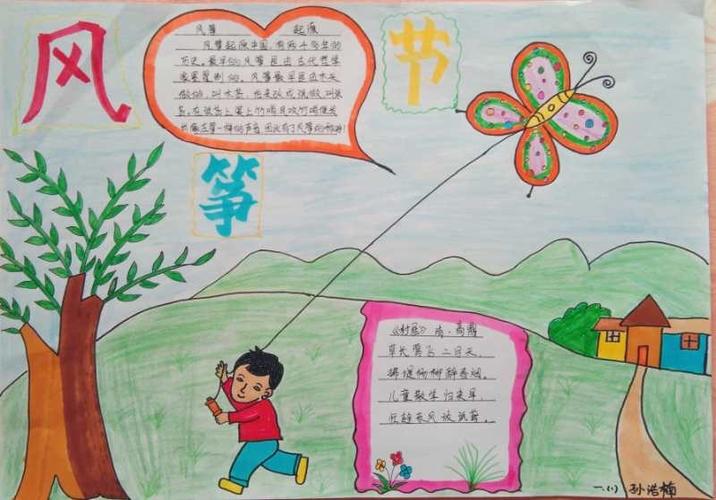 风
筝
节
风筝 起源
风筝起源中国,有两千多年的
历史。最早的风筝是由古代哲学
家墨翟制做的。风筝最早是由木头
做的,叫木鸢,后来改成纸做,叫纸
鸢。在纸鸢上装上竹哨风吹竹哨
像古筝一样的声音,因此有了风筝的称呼!
《村居》 清·高鼎
草长莺飞二月天,
拂堤杨柳醉春烟。
儿童散学归来早,
忙趁东风放纸鸢。
一.(1) 孙浩楠